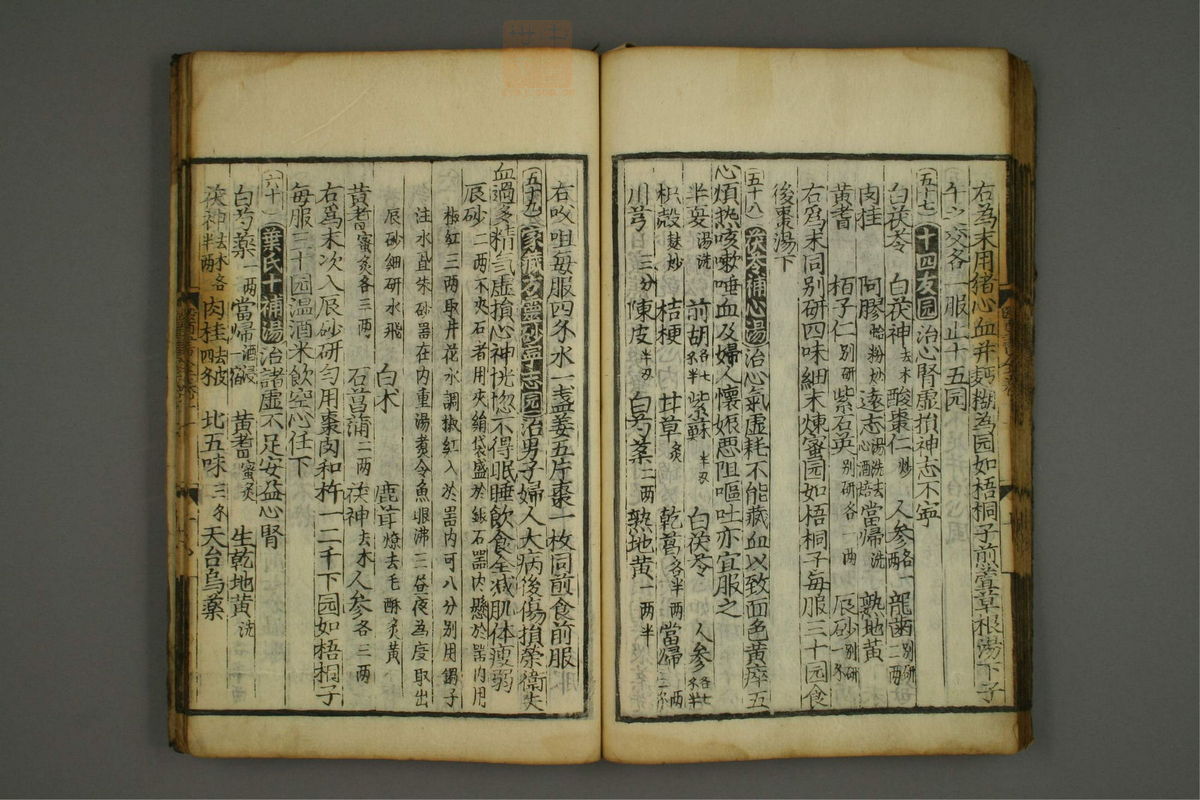 右為末用猪心血并麪糊為园如梧桐子煎萱草根湯下子
午之交各一服止十五园
五十七 十四友园 治心腎虛損神志不寕
白茯苓 白茯神去木 酸棗仁炒 人參各一兩 龍齒別研二兩
肉桂 阿膠蛤粉炒 遠志湯洗去心酒焙 當歸洗 熟地黃
黃耆 栢子仁別研 紫石英別研各一兩 辰砂別研一
右為末同別研四味細末煉蜜园如梧桐子每服三十园食
後棗湯下
五十八 茯苓補心湯 治心氣虛耗不能藏血以致面色黃瘁五
心煩熱咳嗽唾血及婦人懷娠惡阻嘔吐亦宜服之
半夏湯洗 前胡各七半 紫蘇半 白茯苓 人參各七半
枳殼麩炒 桔梗 甘草炙 乾葛各半兩 當歸兩三
川芎三分 陳皮半 白芍藥二兩 熟地黃一兩半
右㕮咀每服四水一盞姜五片棗一枚同煎食前服
五十九 家藏方靈砂寧志园 治男子婦人大病後傷損榮衛失
血過多精氣虛損心神恍惚不得眠睡飲食全減肌体瘦弱
辰砂二兩不夾石者用夾絹袋盛於銀石器內懸於器內用
椒紅三兩取井花水調椒紅入於器內可八分別用鍋子
注水置朱砂器在內重湯煮令魚眼沸三晝夜為度取出
辰砂細研水飛 白朮 鹿茸燎去毛酥炙黃
黃耆蜜炙各三兩 石菖蒲二兩 茯神去木 人參各三兩
右為末次入辰砂研勻用棗肉和杵一二千下园如梧桐子
每服三十园温酒米飲空心任下
六十 葉氏十補湯 治諸虛不足安益心腎
白芍藥一兩 當歸酒浸一宿 黃耆蜜炙 生乾地黃洗
茯神去木各半兩 肉桂去皮四 北五味三 天台烏藥